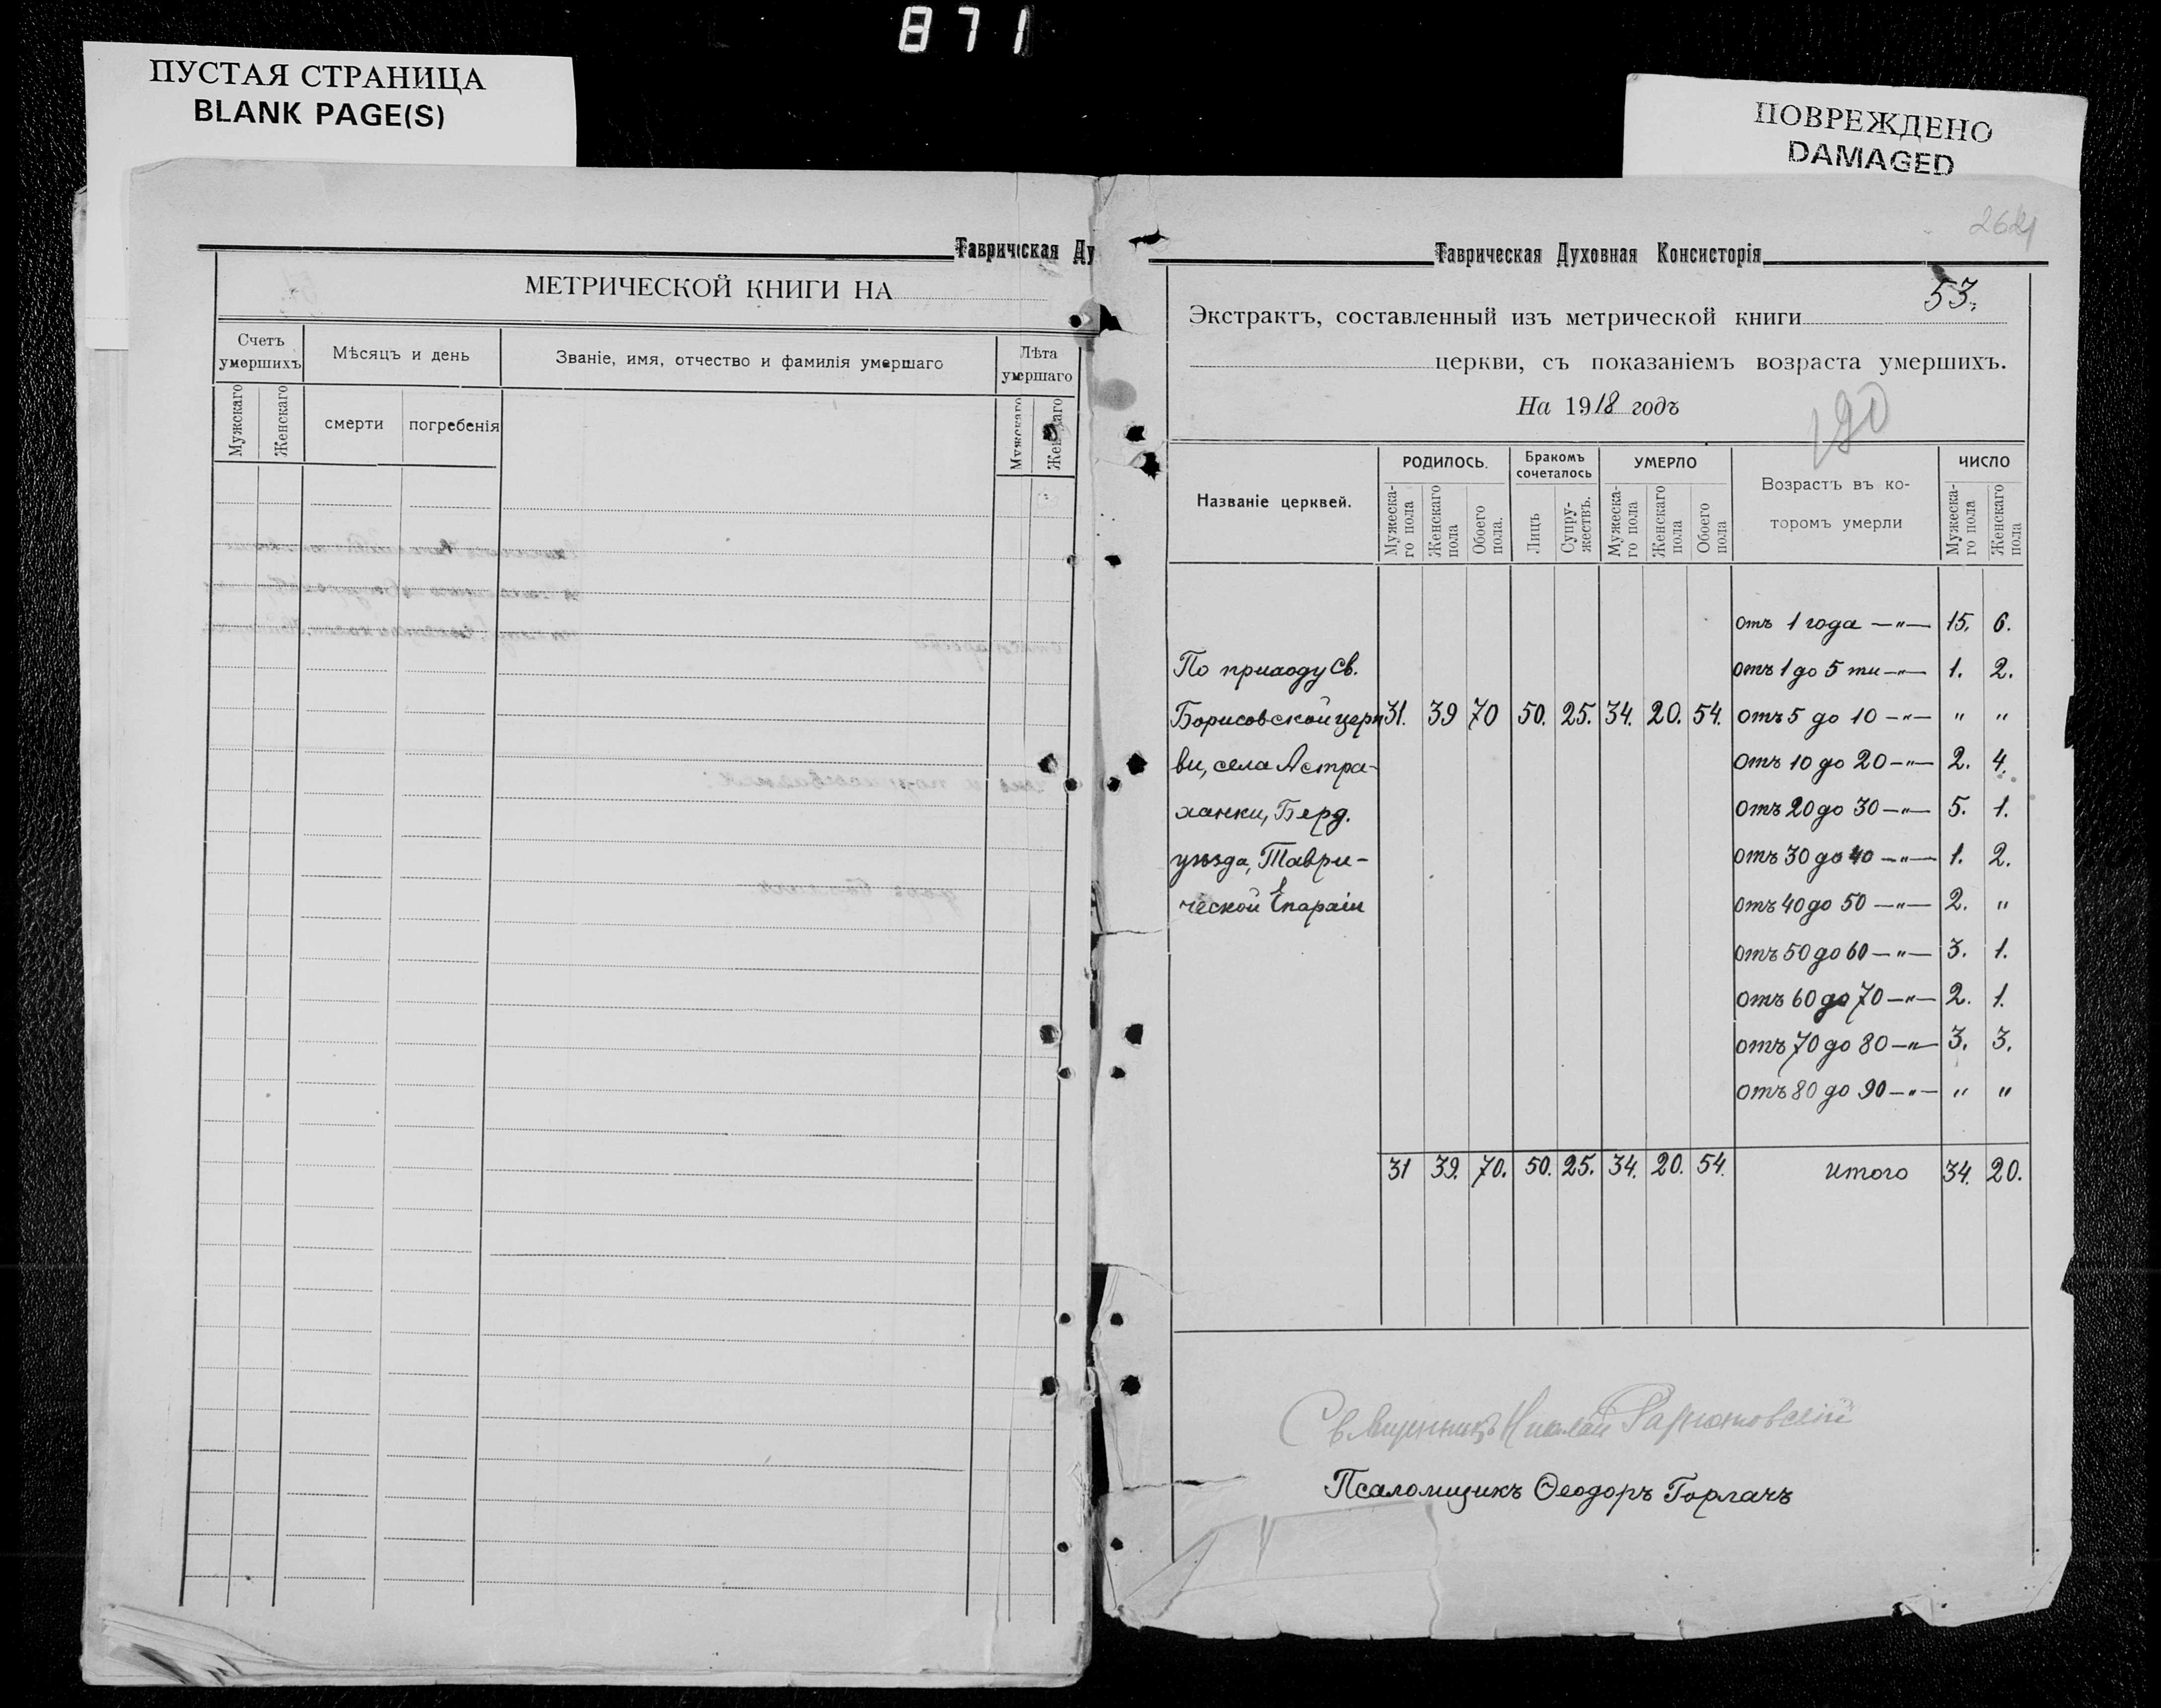 871
ПУСТАЯ СТРАНИЦА
BLANK PAGE(S)
ПОВРЕЖДЕНО
DAMAGED
Таврическая Ду
МЕТРИЧЕСКОЙ КНИГИ НА
Счетъ умершихъ
Мѣсяцъ и день
Званіе, имя, отчество и фамилія умершаго
Лѣта умершаго
Мужскаго
Женскаго
смерти
погребенія
Мужскаго
Женскаго
Таврическая Духовная Консисторія
53.
Экстрактъ, составленный изъ метрической книги
церкви, съ показаніемъ возраста умершихъ.
На 1918 годъ
190
Названіе церквей.
РОДИЛОСЬ.
Бракомъ сочеталось
УМЕРЛО
Возрастъ въ ко-
торомъ умерли
ЧИСЛО
Мужеска-го пола
Женскаго пола
Обоего пола.
Лицъ
Супру-жествъ.
Мужеска-го пола
Женскаго пола
Обоего пола
Мужеска-го пола
Женскаго пола
отъ 1 года —"— 15. 6.
По приходу Св. отъ 1 до 5 ти —"— 1. 2.
Борисовской церк 31. 39 70 50. 25. 34. 20. 54. отъ 5 до 10 —"— " "
ви, села Астра- отъ 10 до 20 —"— 2. 4.
ханки, Берд. отъ 20 до 30 —"— 5. 1.
уѣзда, Таври- отъ 30 до 40 —"— 1. 2.
ческой Епархіи отъ 40 до 50 —"— 2. "
отъ 50 до 60 —"— 3. 1.
отъ 60 до 70 —"— 2. 1.
отъ 70 до 80 —"— 3. 3.
отъ 80 до 90 —"— " "
31 39. 70. 50. 25. 34. 20. 54. итого 34. 20.
Священникъ Николай
Псаломщикъ Ѳеодоръ Горлачъ